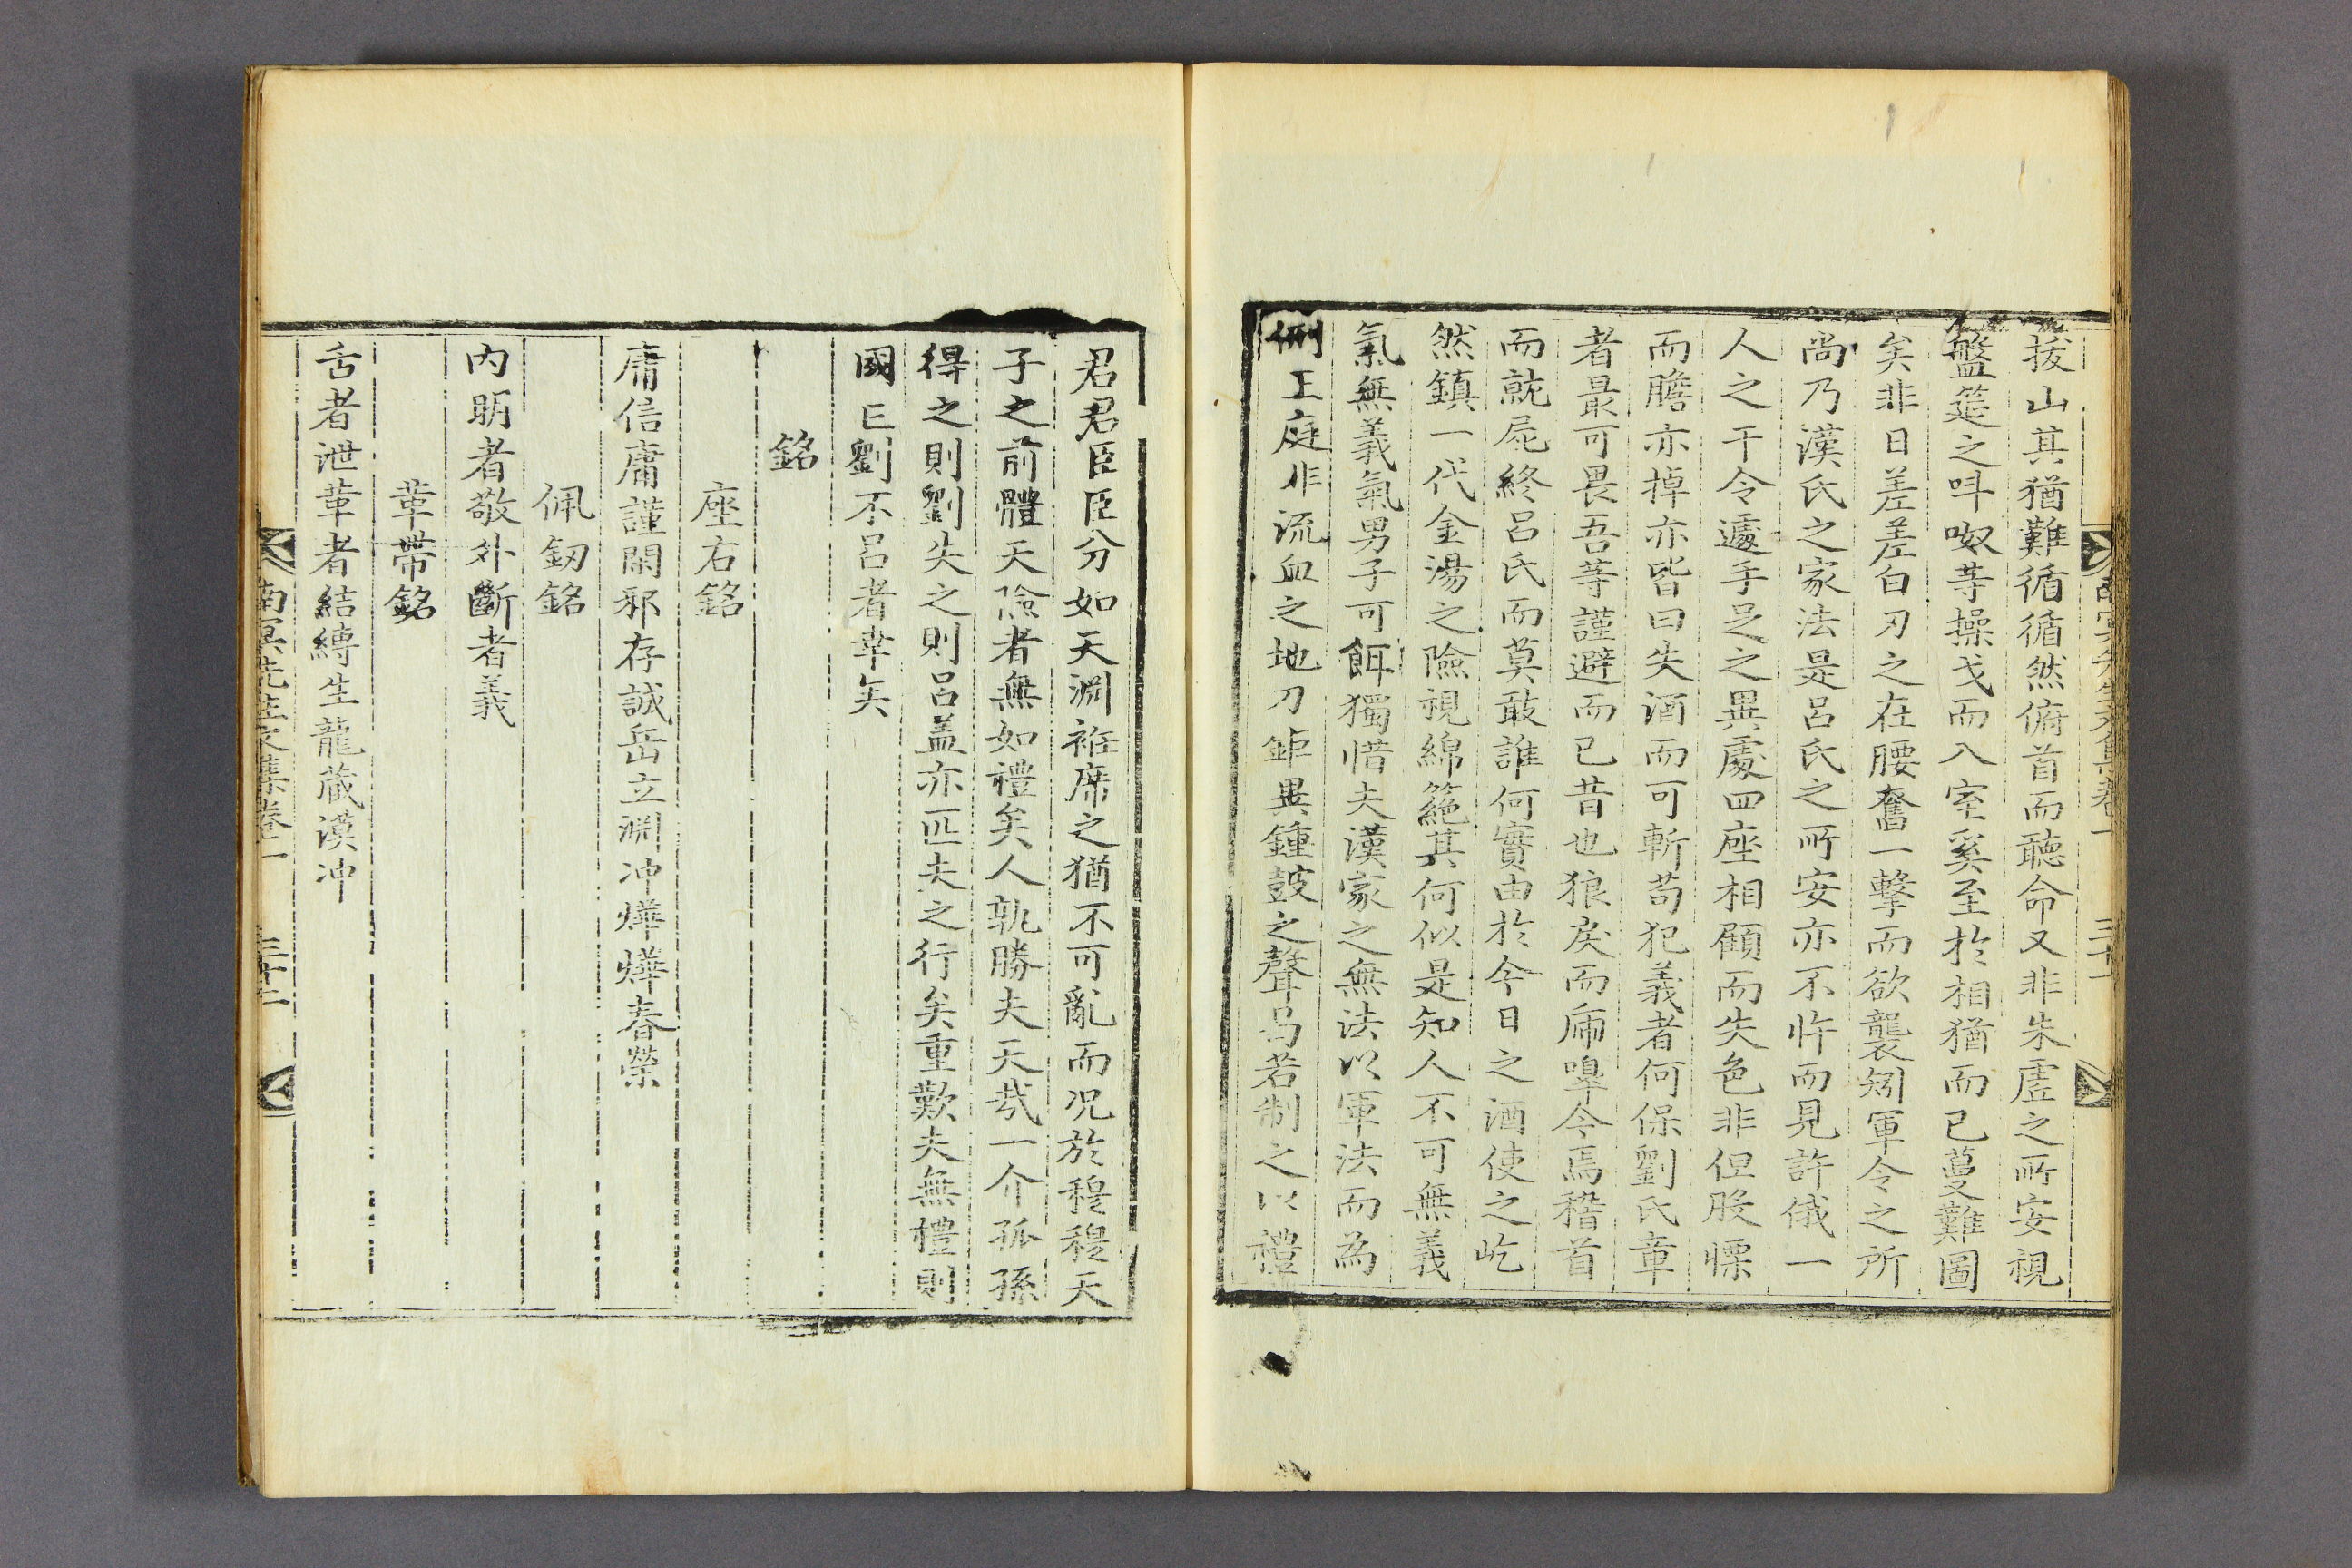 拔山其猶難循循然俯首而聽命又非朱虛之所安視
盤筵之呌呶等操戈而入室奚至於相猶而已蔓難圖
矣非日差差白刃之在腰奮一擊而欲襲矧軍令之所
尚乃漢氏之家法是呂氏之所安亦不忤而見許俄一
人之干令遽手足之異處四座相顧而失色非但股慄
而膽亦掉亦皆曰失酒而可斬苟犯義者何保劉氏章
者最可畏吾等謹避而已昔也狼戾而嘷今焉稽首
而就屍終呂氏而莫敢誰何實由於今日之酒使之屹
然鎮一代金湯之險視綿蕝其何似是知人不可無義
氣無義氣男子可餌獨惜夫漢家之無法以軍法而為
例王庭非流血之地刀鉅異鍾鼓之聲曷若制之以禮
君君臣臣分如天淵袵席之猶不可亂而况於穆穆天
子之前體天險者無如禮矣人孰勝夫天㦲一介孤孫
得之則劉失之則呂盖亦匹夫之行矣重歎夫無禮則
國亡劉不呂者幸矣
銘
座右銘
庸信庸謹閑邪存誠岳立淵冲燁燁春榮
佩釼銘
內明者敬外斷者義
革帶銘
舌者泄革者結縛生龍藏漠冲
南冥先生文集卷一 三十二